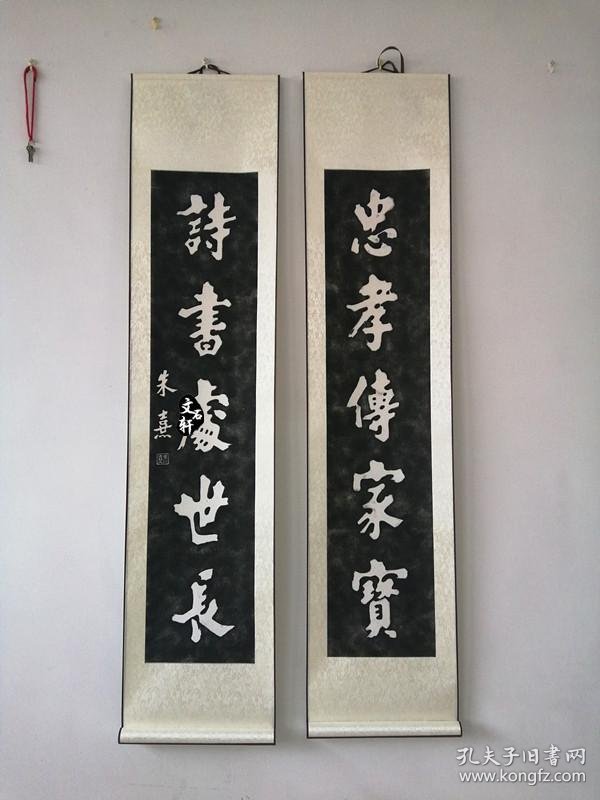 忠孝傳家寶
詩書處世長
朱熹
文石轩
孔夫子旧书网
www.kongfz.com